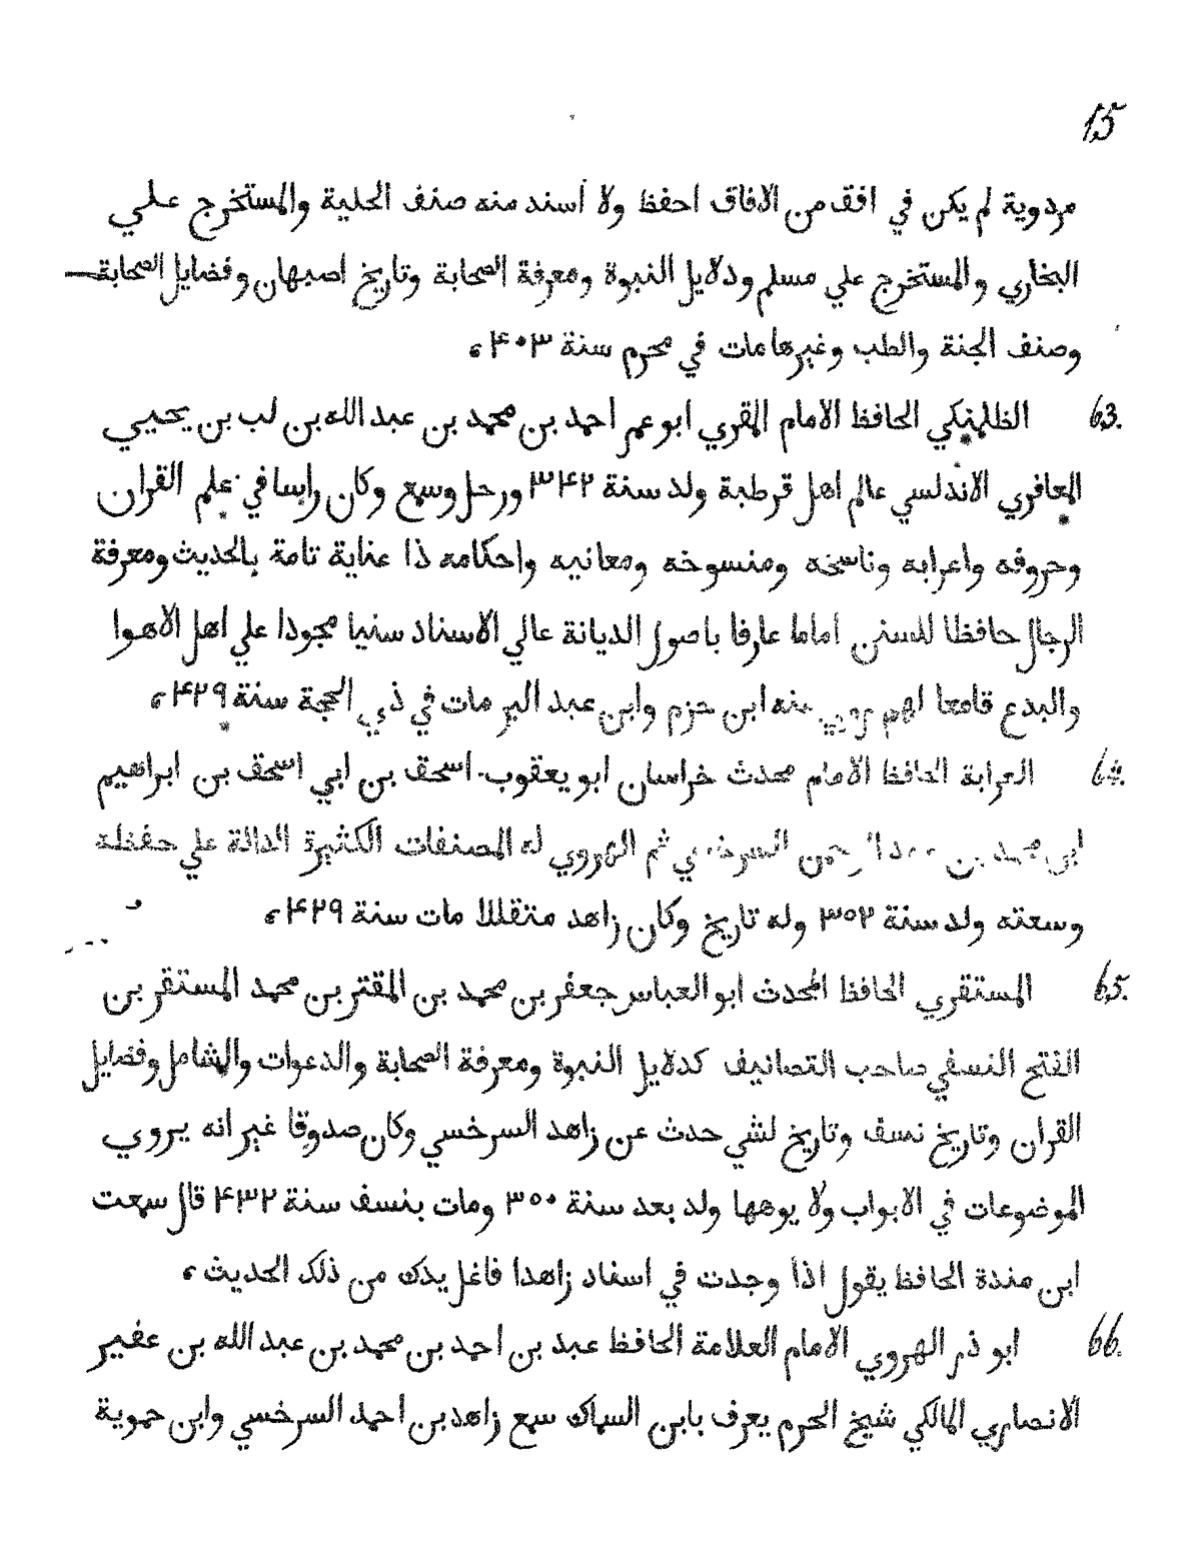 15
مردوية لم يكن في افق من الافاق احفظ ولا أسند منه صنف الحلية والمستخرج علي
البخاري والمستخرج علي مسلم ودلايل النبوة ومعرفة الصحابة وتاريخ اصبهان وفضايل الصحابة
وصنف الجنة والطب وغيرها مات في محرم سنة ۴۰۳
63. الظلمنكي الحافظ الامام المقري ابو عمر احمد بن محمد بن عبد الله بن لب بن يحيي
المعافري الاندلسي عالم اهل قرطبة ولد سنة ۳۴۲ ورحل وسمع وكان راسا في علم القران
وحروفه واعرابه وناسخه ومنسوخه ومعانيه واحكامه ذا عناية تامة بالحديث ومعرفة
الرجال حافظا للسنن اماما عارفا باصول الديانة عالي الاسناد سنيا مجودا علي اهل الاهوا
والبدع قامعا لهم روي منه ابن حزم وابن عبد البر مات في ذي الحجة سنة ۴۲۹
64. العرابة الحافظ الامام محدث خراسان ابو يعقوب اسحق بن ابي اسحق بن ابراهيم
ابن محمد بن السرخسي ثم الهروي له المصنفات الكثيرة الدالة علي حفظه
وسعته ولد سنة ۳۵۲ وله تاريخ وكان زاهد متقللا مات سنة ۴۲۹
65. المستقري الحافظ المحدث ابو العباس جعفر بن محمد بن المقتر بن محمد المستقر بن
الفتح النسفي صاحب التصانيف كدلايل النبوة ومعرفة الصحابة والدعوات والشامل وفضايل
القران وتاريخ نسف وتاريخ لشي حدث عن زاهد السرخسي وكان صدوقا غير انه يروي
الموضوعات في الابواب ولا يوهها ولد بعد سنة ۳۵۰ ومات بنسف سنة ۴۳۲ قال سمعت
ابن مندة الحافظ يقول اذا وجدت في اسناد زاهدا فاغل يدك من ذلك الحديث
66. ابو ذر الهروي الامام العلامة الحافظ عبد بن احمد بن محمد بن عبد الله بن عفير
الانصاري المالكي شيخ الحرم يعرف بابن السماك سمع زاهد بن احمد السرخسي وابن حموية